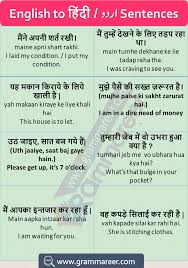 English to हिंदी / اردو Sentences
मैंने अपनी शर्त रखी।
maine apni shart rakhi.
I laid my condition. / I put my condition.
मैं तुम्हें देखने के लिए तड़प रहा था।
main tumhe dekhane ke lie tadap raha tha.
I was craving to see you.
यह मकान किराये के लिये खाली है।
yah makaan kiraye ke liye khali hai.
This house is to let.
मुझे पैसे की सख्त जरूरत है।
(mujhe paise ki sakht zarurat hai.)
I am in a dire need of money
उठ जाइए, सात बज गये है।
(Uth jaaiye, saat baj gaye hain.)
Please get up, it's 7 o'clock.
तुम्हारी जेब में वो उभरा हुआ क्या है?
tumhari jeb me wo ubhara hua kya hai?
What's that bulge in your pocket?
मैं आपका इन्तजार कर रहा हूँ।
Main aapka intazar kar raha hun.
I am waiting for you.
वह कपडे सिलाई कर रही है।
vah kapade silai kar rahi hai.
She is stitching clothes.
www.grammareer.com